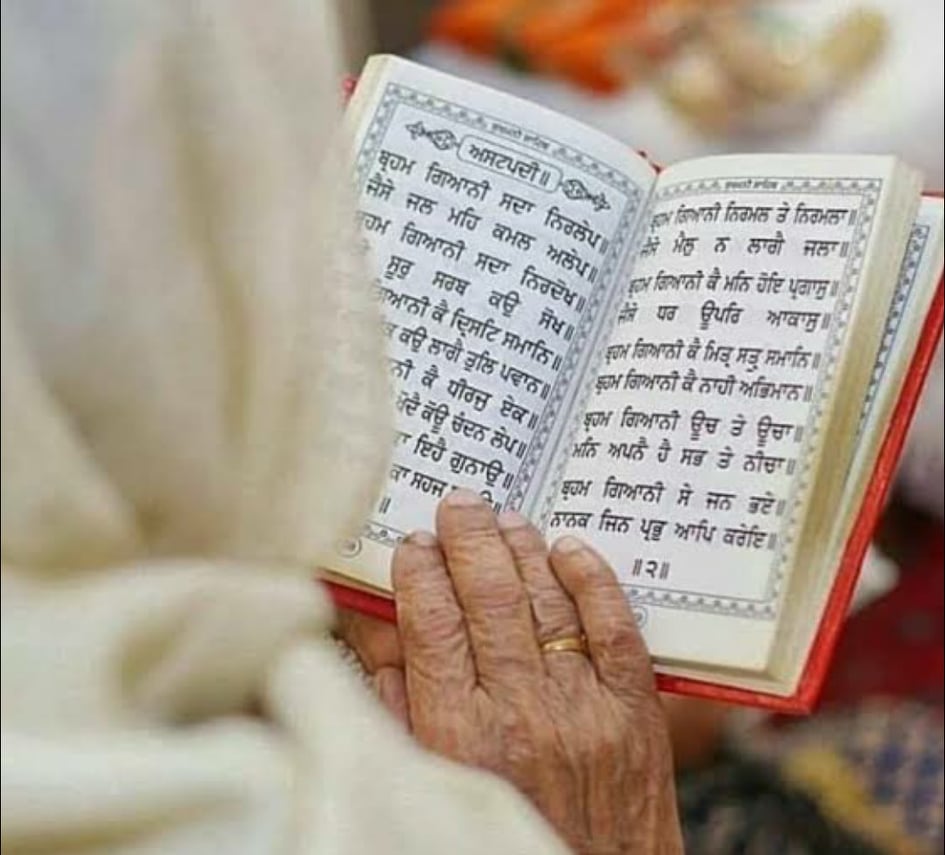 ਸੁਖਮਨੀ ਸਾਹਿਬ
ਅਸਟਪਦੀ॥
ਬ੍ਰਹਮ ਗਿਆਨੀ ਸਦਾ ਨਿਰਲੇਪ॥
ਜੈਸੇ ਜਲ ਮਹਿ ਕਮਲ ਅਲੇਪ॥
ਗਿਆਨੀ ਸਦਾ ਨਿਰਦੋਖ॥
ਸੂਰੁ ਸਰਬ ਕਉ ਸੋਖ॥
ਗਿਆਨੀ ਕੈ ਦ੍ਰਿਸਟਿ ਸਮਾਨਿ॥
ਕਉ ਲਾਗੈ ਤੁਲਿ ਪਵਾਨ॥
ਕੈ ਧੀਰਜੁ ਏਕ॥
ਕਊ ਚੰਦਨ ਲੇਪ॥
ਇਹੈ ਗੁਨਾਉ॥
ਕਾ ਸਹਜ
॥
ਸੁਖਮਨੀ ਸਾਹਿਬ
ਬ੍ਰਹਮ ਗਿਆਨੀ ਨਿਰਮਲ ਤੇ ਨਿਰਮਲਾ॥
ਜੈਸੇ ਮੈਲੁ ਨ ਲਾਗੈ ਜਲਾ॥
ਬ੍ਰਹਮ ਗਿਆਨੀ ਕੈ ਮਨਿ ਹੋਇ ਪ੍ਰਗਾਸੁ॥
ਜੈਸੇ ਧਰ ਊਪਰਿ ਆਕਾਸੁ॥
ਬ੍ਰਹਮ ਗਿਆਨੀ ਕੈ ਮਿਤ੍ਰ ਸਤ੍ਰੁ ਸਮਾਨਿ॥
ਬ੍ਰਹਮ ਗਿਆਨੀ ਕੈ ਨਾਹੀ ਅਭਿਮਾਨ॥
ਬ੍ਰਹਮ ਗਿਆਨੀ ਊਚ ਤੇ ਊਚਾ॥
ਮਨਿ ਅਪਨੈ ਹੈ ਸਭ ਤੇ ਨੀਚਾ॥
ਬ੍ਰਹਮ ਗਿਆਨੀ ਸੇ ਜਨ ਭਏ॥
ਨਾਨਕ ਜਿਨ ਪ੍ਰਭੁ ਆਪਿ ਕਰੇਇ॥
॥੨॥